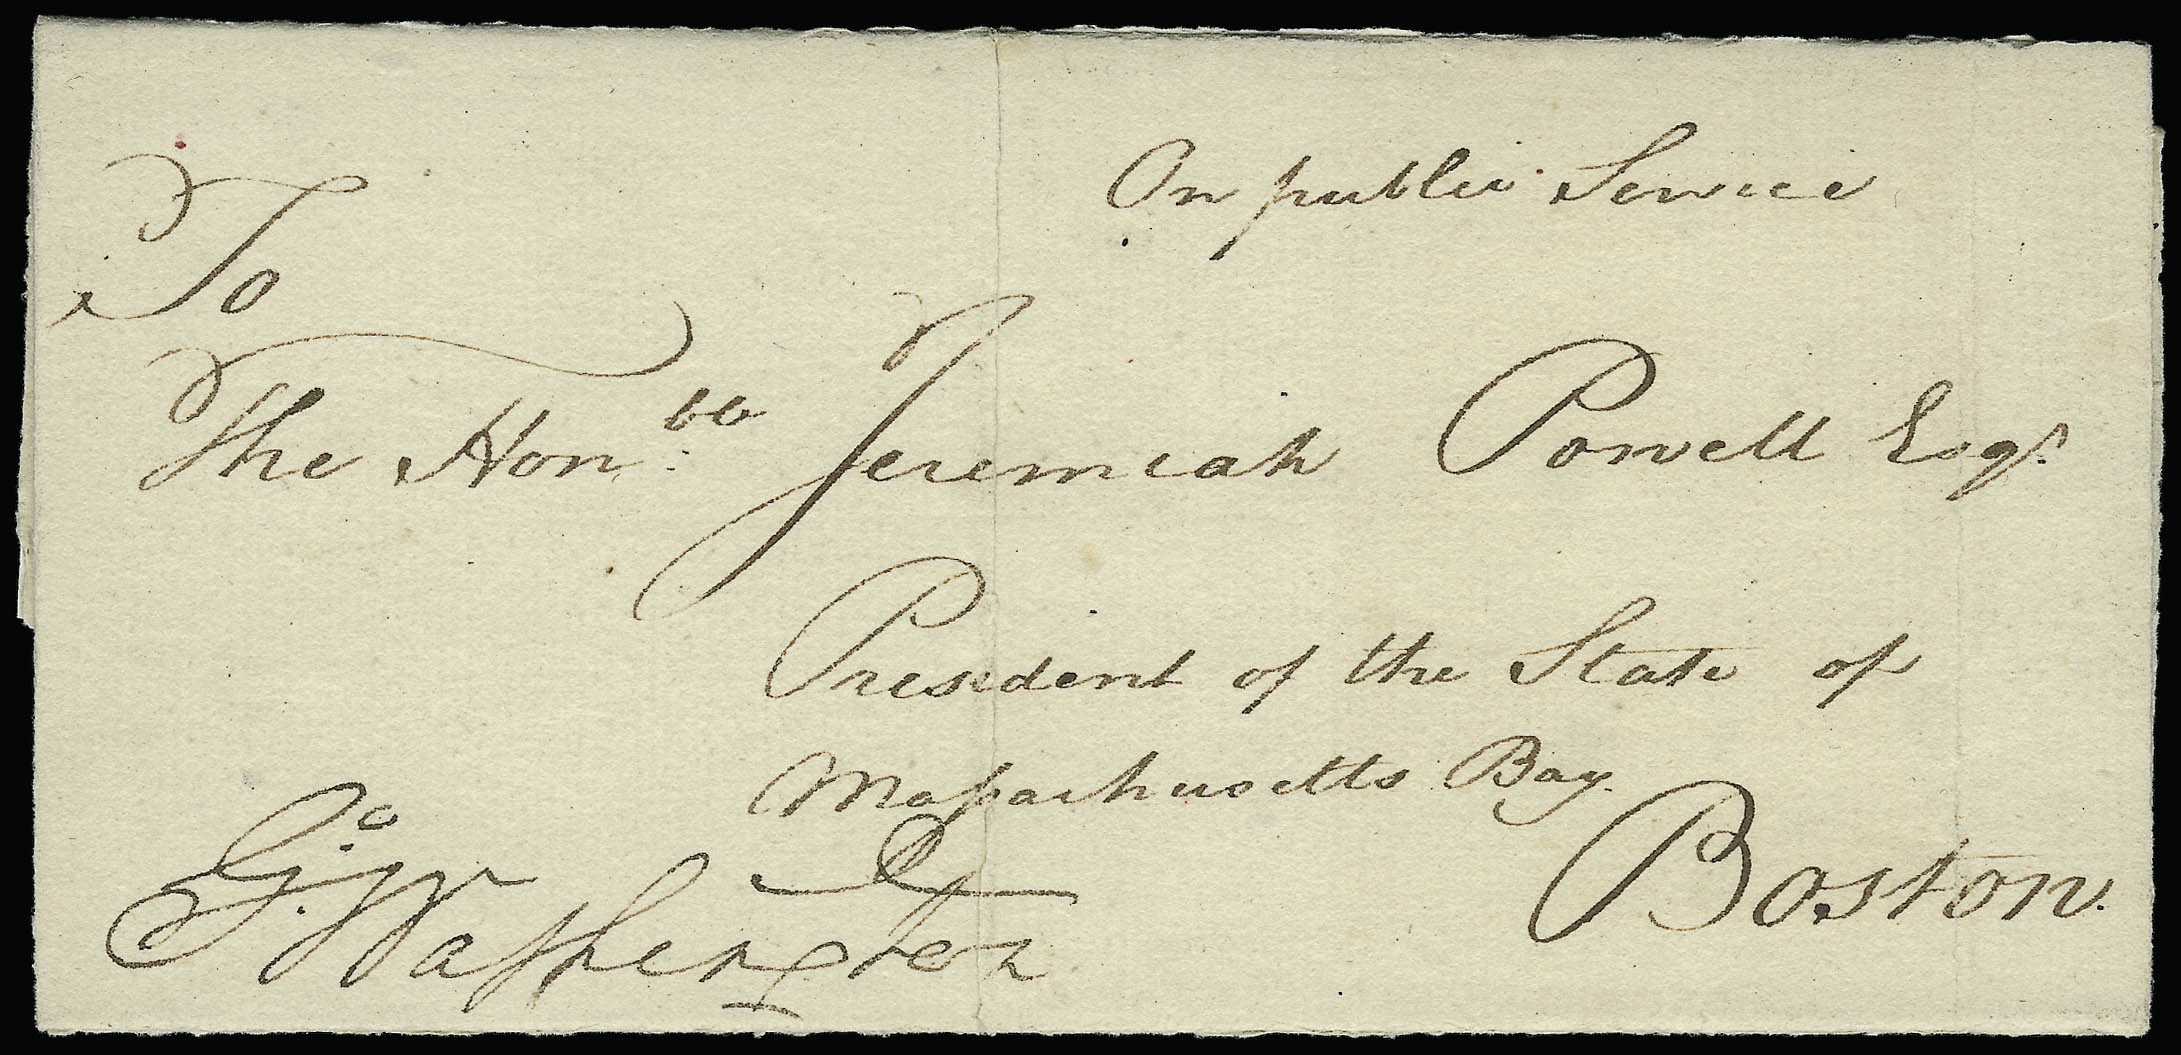 On public Service
To
The Hon:ble Jeremiah Powell Esqr.
President of the State of
Massachusetts Bay.
Boston.
Go. Washington